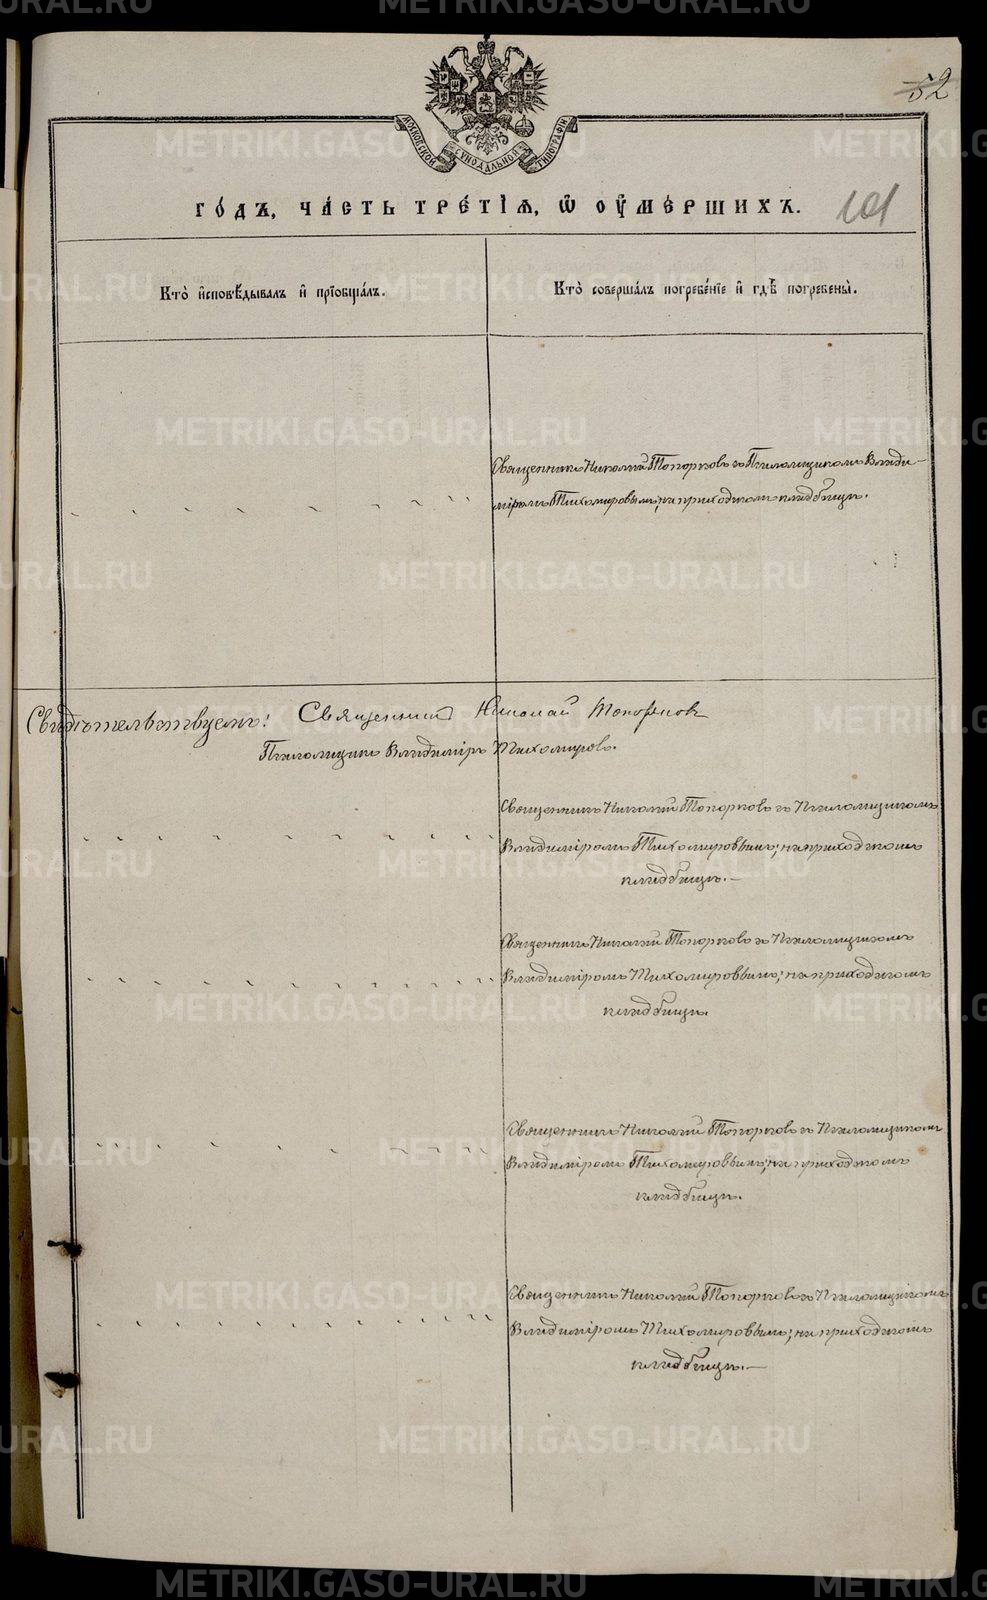 52
МОСКОВСКОЙ СѴНОДАЛЬНОЙ ТИПОГРАФІИ
ГО́ДЪ, ЧА́СТЬ ТРЕ́ТІѦ, Ѡ҆ ОУ҆МЕ́РШИХЪ.
101
Кто̀ и҆сповѣ́дывалъ и҆ прїобща́лъ.
Кто̀ соверша́лъ погребе́нїе и҆ гдѣ̀ погребены̀.
Священникъ Николай Топорковъ съ Псаломщикомъ Влади-
міромъ Тихомировымъ; на приходскомъ кладбищѣ.
Свидѣтельствуемъ: Священникъ Николай Топорковъ
Псаломщикъ Владиміръ Тихомировъ.
Священникъ Николай Топорковъ съ Псаломщикомъ
Владиміромъ Тихомировымъ; на приходскомъ
кладбищѣ. —
Священникъ Николай Топорковъ съ Псаломщикомъ
Владиміромъ Тихомировымъ; на приходскомъ
кладбищѣ.
Священникъ Николай Топорковъ съ Псаломщикомъ
Владиміромъ Тихомировымъ; на приходскомъ
кладбищѣ.
Священникъ Николай Топорковъ съ Псаломщикомъ
Владиміромъ Тихомировымъ; на приходскомъ
кладбищѣ. —
METRIKI.GASO-URAL.RU